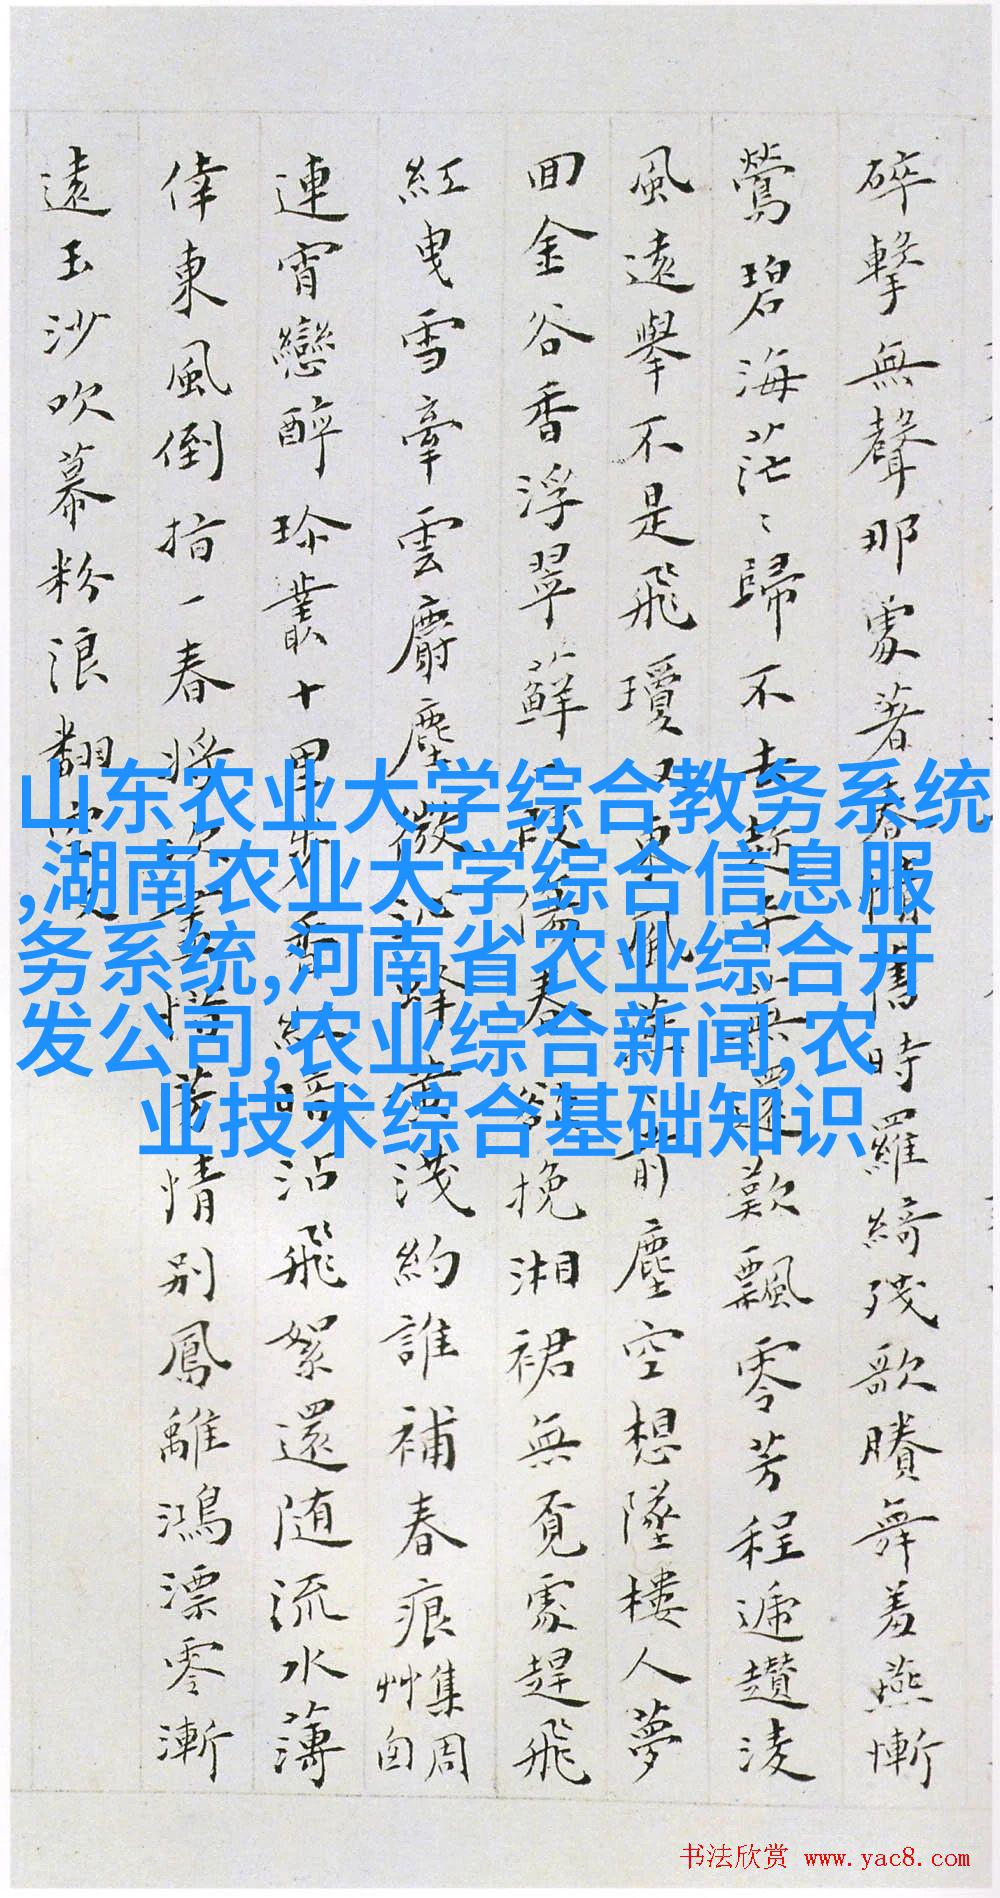 碎擊無聲那處著春舊時羅綺殘歌賸舞羞燕慚
鶯碧海茫〻歸不去無還歎飄零芳程遞趲淩
風遠舉不是飛瓊又東風前塵空想墜樓人夢
回金谷香浮翠蘚段傷春欲挽湘裙無覓處趕飛
紅曳雪牽雲麝塵微蜂黃淺約誰補春痕
集周
艸囱
連宵戀醉珍叢十里步香紅沾飛絮還随流水薄
倖東風倒指一春將次盡惜芳情別鳳離鴻漂零漸
遠玉沙吹幕粉浪翻空
山东农业大学综合教务系统
,湖南农业大学综合信息服
务系统,河南省农业综合开
发公司,农业综合新闻,农
业技术综合基础知识
书法欣赏 www.yac8.com